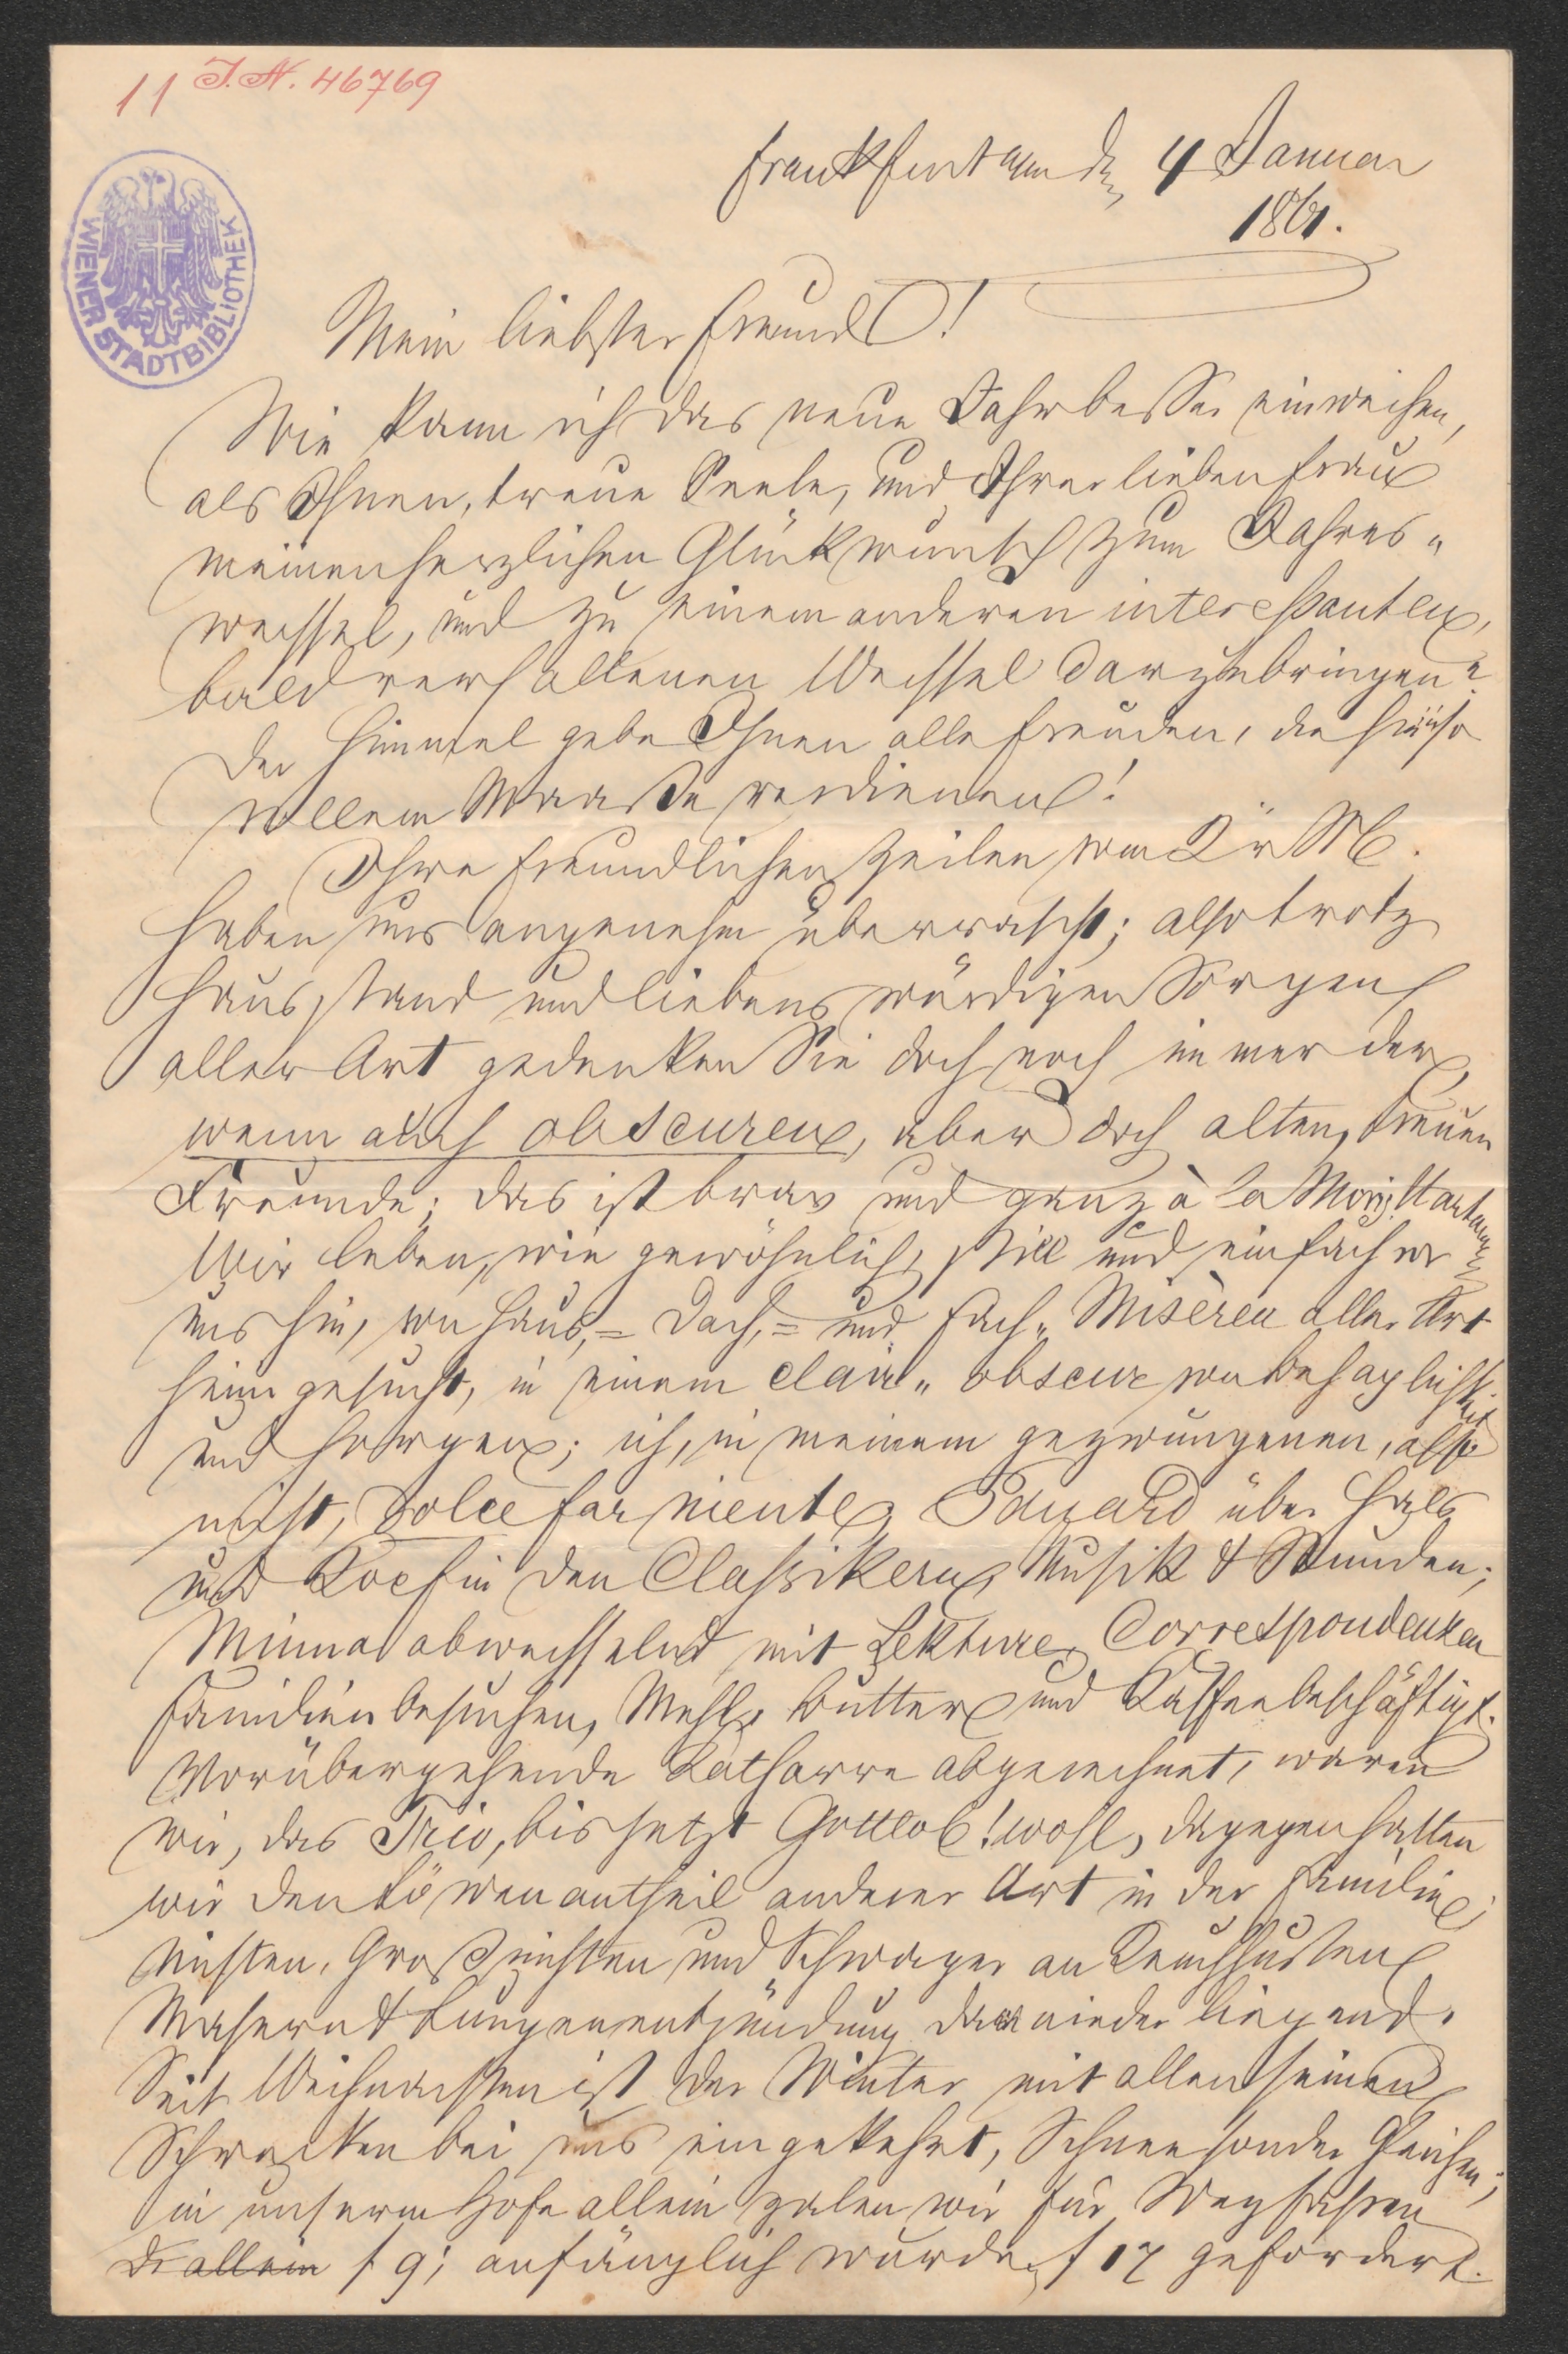 11 J.N. 46769
WIENER STADTBIBLIOTHEK
Frankfurt am d. 4 Januar
1861.
Mein liebster Freund!
Wie kann ich das neue Jahr besser einweihen,
als Ihnen, treue Seele, und Ihrer lieben Frau
meinen herzlichen Glückwunsch zum Jahres„
wechsel, und zu einem anderen interessanten,
bald verfallenen Wechsel darzubringen?
Der Himmel gebe Ihnen alle Freuden, die Sie in so
vollem Maasse verdienen!
Ihre freundlichen Zeilen vom
haben uns angenehm überrascht; also trotz
Hausstand und liebenswürdigen Sorgen
aller Art gedenken Sie doch noch immer der,
wenn auch obscuren, aber doch alten, treuen
Freunde; das ist brav und ganz à la Moriz Hartmann
Wir leben, wie gewöhnlich, still und einfach vor
uns hin, von Haus,= Dach,= und Fach„ Misèren aller Art
heimgesucht, in einem clair„ obscur von Behaglichkeit
und Sorgen; ich, in meinem gezwungenen, also
nicht, dolce far niente, Eduard über Hals
und Kopf in den Classikern, Musik & Stunden;
Minna abwechselnd mit Lektüre, Correspondenzen
Familienbesuchen, Mehl, Butter und Kaffee beschäftigt.
Vorübergehende Katharre abgerechnet, waren
wir, das Trio, bis jetzt Gottlob! wohl, dagegen hatten
wir den Löwenantheil anderer Art in der Familie;
Nichten, Großnichten und Schwager an Keuchhusten
Masern & Lungenentzündung darnieder liegend.
Seit Weihnachten ist der Winter mit allen seinen
Schrecken bei uns eingekehrt, Schnee sonder Gleichen;
in unserm Hofe allein zalen wir für Wegfahren
allein f 9; anfänglich wurden f 17 gefordert.